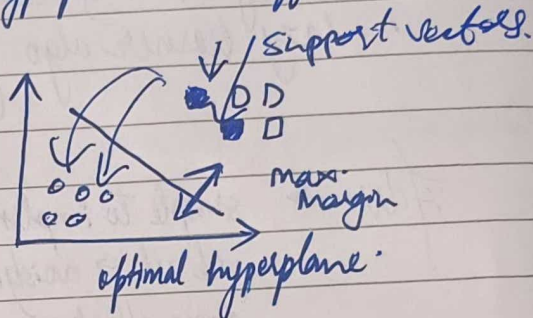 support vectors.
max.
Margin
optimal hyperplane.